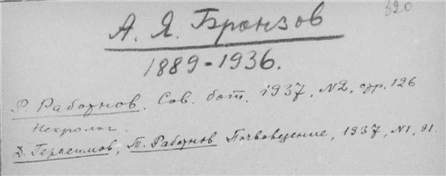 320
А. Я. Бронзов
1889-1936.
Р. Работнов. Сов. бот. 1937, N2, стр. 126
Некролог.
Д. Герасимов, Т. Работнов Почвоведение, 1937, N1, 91.